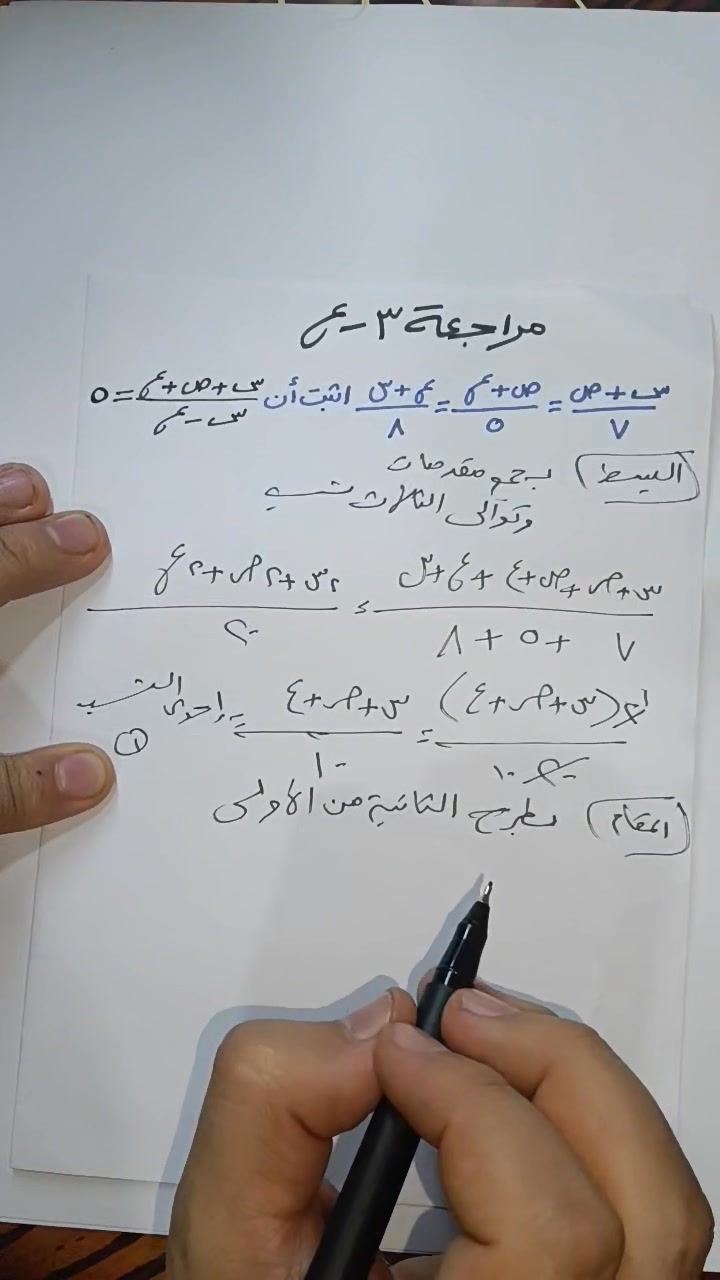 مراجعة ٣ - ع
س+ص/٧ = ص+ع/٥ = ع+س/٨ اثبت أن س+ص+ع/س-ع = ٥
البسط بجمع مقدمات
وتوالى الثلاث نسب
س+ص+ص+ع+ع+س/٧+٥+٨ = ٢س+٢ص+٢ع/٢٠
٢(س+ص+ع)/٢٠ ١٠ = س+ص+ع/١٠ = إحدى النسب ①
المقام بطرح الثانية من الأولى